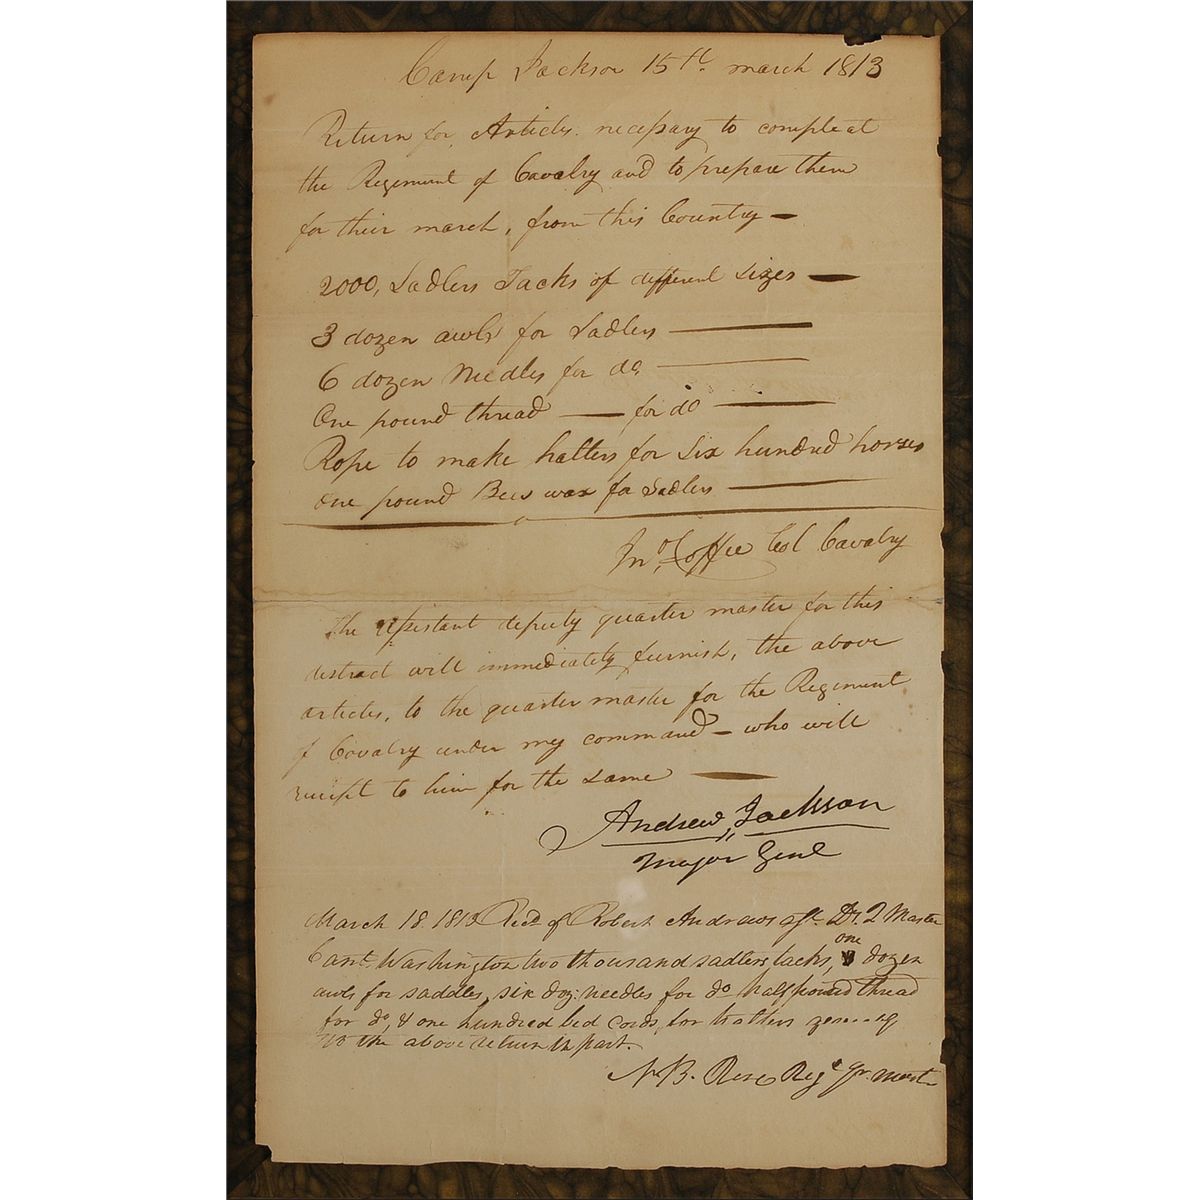 Camp Jackson 15th. march 1813
Return for Articles necessary to compleat
the Regiment of Cavalry and to prepare them
for their march, from this Country —
2000, Sadlers Tacks of different sizes —
3 dozen awls for Sadlers —
6 dozen Needles for do. —
One pound thread — for do —
Rope to make halters for Six hundred horses
One pound Bees wax for Sadlers —
Jno. Coffee Col Cavalry
The assistant deputy quarter master for this
district will immediately furnish, the above
articles, to the quarter master for the Regiment
of Cavalry under my command — who will
receipt to him for the same —
Andrew, Jackson
Major Genl
March 18. 1813 Recd. of Robert Andrews Dy. Q Master
Cant. Washington two thousand sadlers tacks, one dozen
awls for saddles, six doz: needles for do half pound thread
for do, & one hundred bed cords, for halters
the above return in part.
N.B. Rose Regt. Qr. Mast